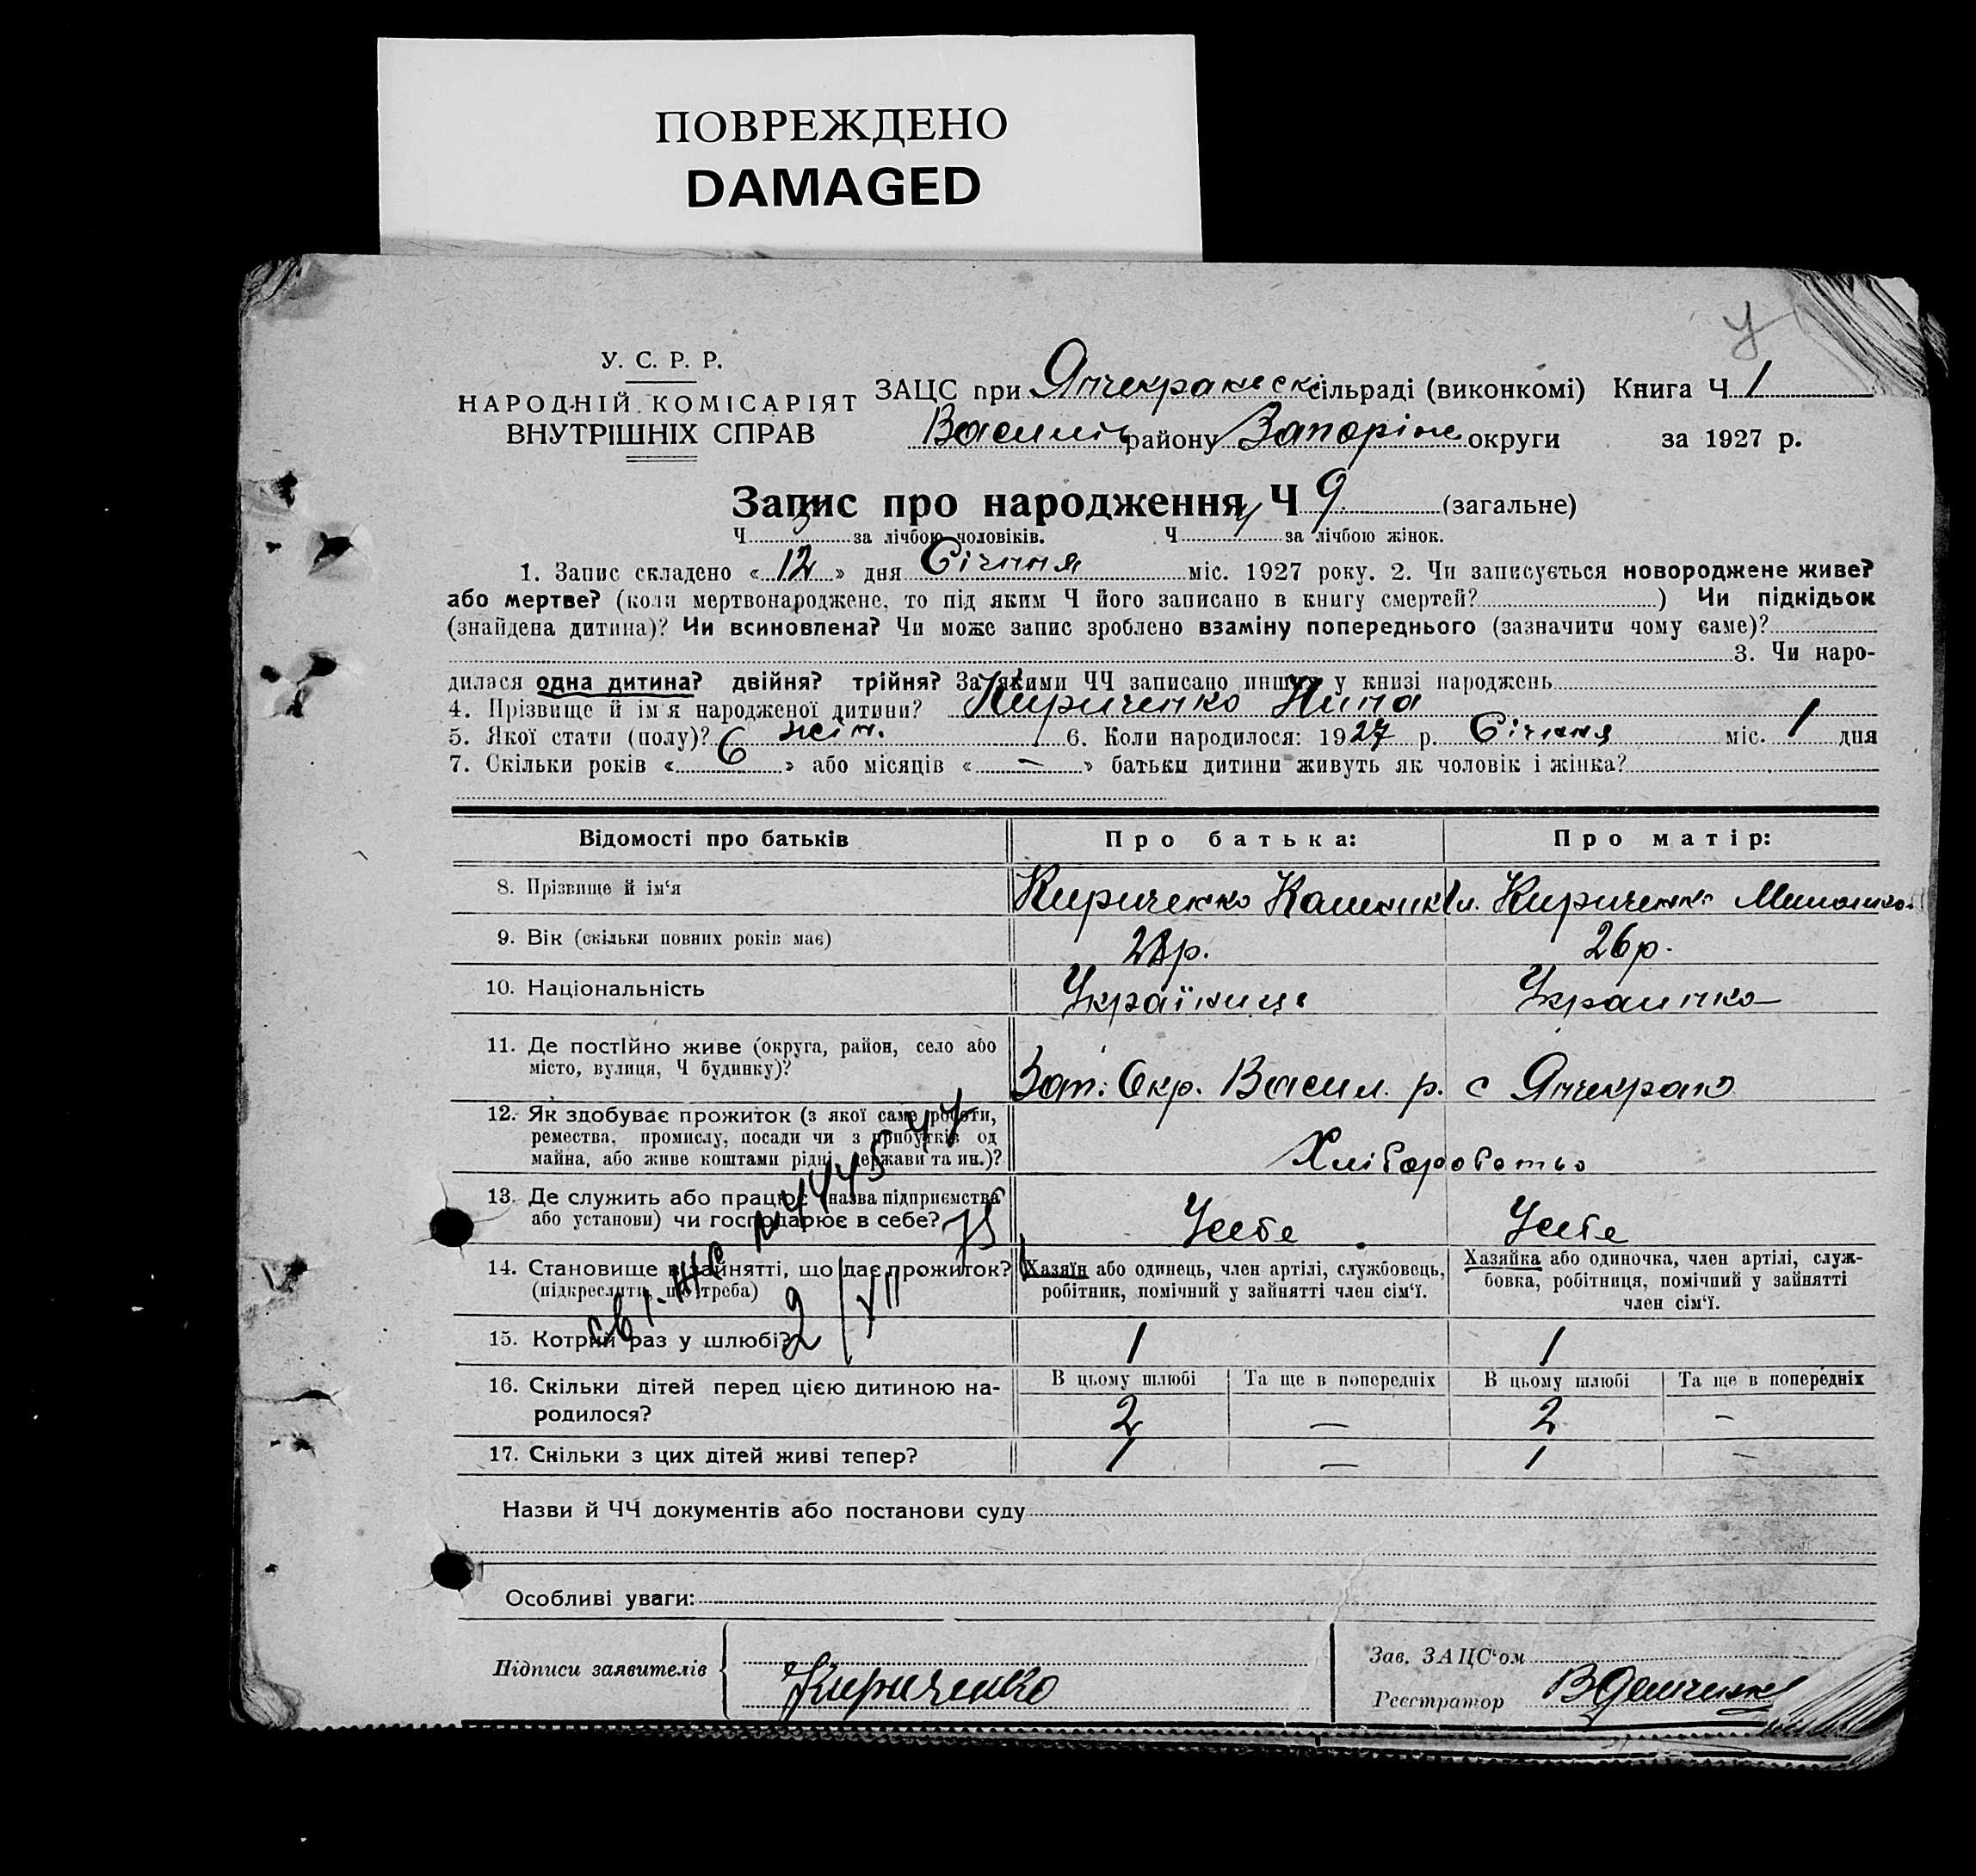 ПОВРЕЖДЕНО
DAMAGED
У. С. Р. Р.
НАРОДНІЙ КОМІСАРІЯТ
ВНУТРІШНІХ СПРАВ
ЗАЦС при сільраді (виконкомі) Книга Ч 1
району Запоріж округи за 1927 р.
Запис про народження Ч 9 (загальне)
Ч за лічбою чоловіків. Ч за лічбою жінок.
1. Запис складено « 12 » дня Січня міс. 1927 року. 2. Чи записується новороджене живе?
або мертве? (коли мертвонароджене, то під яким Ч його записано в книгу смертей? ) Чи підкідьок
(знайдена дитина)? Чи всиновлена? Чи може запис зроблено взаміну попереднього (зазначити чому саме)?
3. Чи наро-
дилася одна дитина? двійня? трійня? За якими ЧЧ записано инших у книзі народжень
4. Прізвище й ім'я народженої дитини? Кириченко Нина
5. Якої стати (полу)? жін. 6. Коли народилося: 1927 р. Січня міс. 1 дня
7. Скільки років « 6 » або місяців « — » батьки дитини живуть як чоловік і жінка?
Відомості про батьків Про батька: Про матір:
8. Прізвище й ім‘я Кириченко Кириченко
9. Вік (скільки повних років має) 26 р.
10. Національність Українець Украинка
11. Де постійно живе (округа, район, село або
місто, вулиця, Ч будинку)?
Зап. Окр. Васил. р. с Янчекрак
12. Як здобуває прожиток (з якої саме роботи,
ремества, промислу, посади чи з прибутків од
майна, або живе коштами рідні, держави та ин.)?
Хліборобство
13. Де служить або працює (назва підприємства
або установи) чи господарює в себе? У себе У себе
14. Становище в зайнятті, що дає прожиток?
(підкреслити, що треба)
Хазяїн або одинець, член артілі, службовець,
робітник, помічний у зайнятті член сім‘ї.
Хазяйка або одиночка, член артілі, служ-
бовка, робітниця, помічний у зайнятті
член сім‘ї.
15. Котрий раз у шлюбі? 1 1
16. Скільки дітей перед цією дитиною на-
родилося?
В цьому шлюбі Та ще в попередніх В цьому шлюбі Та ще в попередніх
2 — 2 —
17. Скільки з цих дітей живі тепер? 1 — 1 —
Назви й ЧЧ документів або постанови суду
Особливі уваги:
Підписи заявителів Кириченко
Зав. ЗАЦС‘ом
Реєстратор